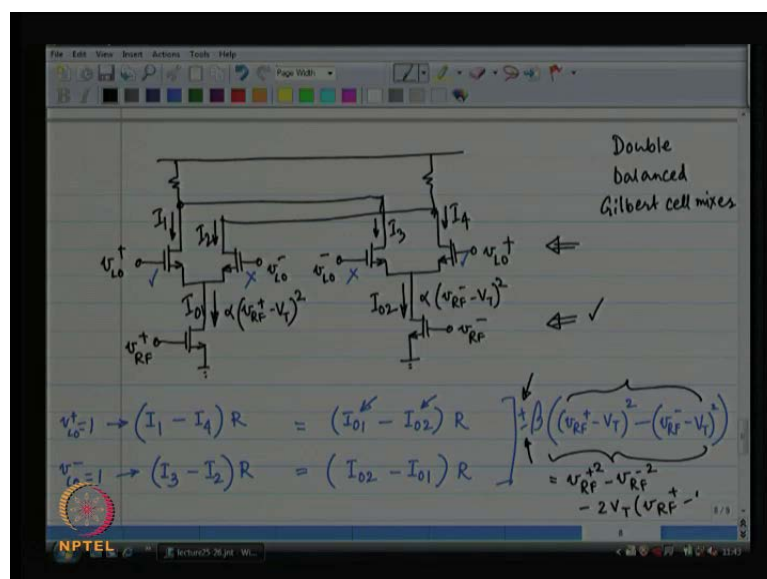 File Edit View Insert Actions Tools Help
Page Width
B I
Double
balanced
Gilbert cell mixes
I₁↓
I₂↓
↓I₃
↓I₄
v_LO⁺
v_LO⁻
v_LO⁻
v_LO⁺
I₀ ↓ α(v_RF⁺ - V_T)²
I₀₂ ↓ α(v_RF⁻ - V_T)²
v_RF⁺
v_RF⁻
v_LO⁺=1 → (I₁ - I₄) R = (I₀₁ - I₀₂) R ] ± β((v_RF⁺ - V_T)² - (v_RF⁻ - V_T)²)
v_LO⁻=1 → (I₃ - I₂) R = (I₀₂ - I₀₁) R
= v_RF⁺² - v_RF⁻²
- 2V_T(v_RF⁺ - '
8/8
8
NPTEL
lecture25-26.jnt - Wi...
11:43